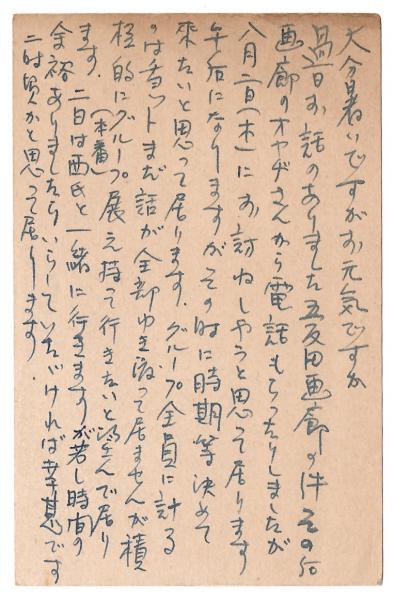 大分暑いですがお元気ですか
過日お話のありました五反田画廊の件その后
画廊のオヤヂさんから電話もらったりしましたが
八月二日(木)にお訪ねしやうと思って居ります
午后になりますがその時に時期等決めて
来たいと思って居ります．グループ全員に計る
のは まだ話が全部ゆき渡って居ませんが積
極的にグループ展え持て行きたいと望んで居り
(本番)
ます．二日は西氏と一緒に行きますが若し時間の
余裕ありましたらいらしていたゞければ幸甚です
二時頃かと思って居ります．